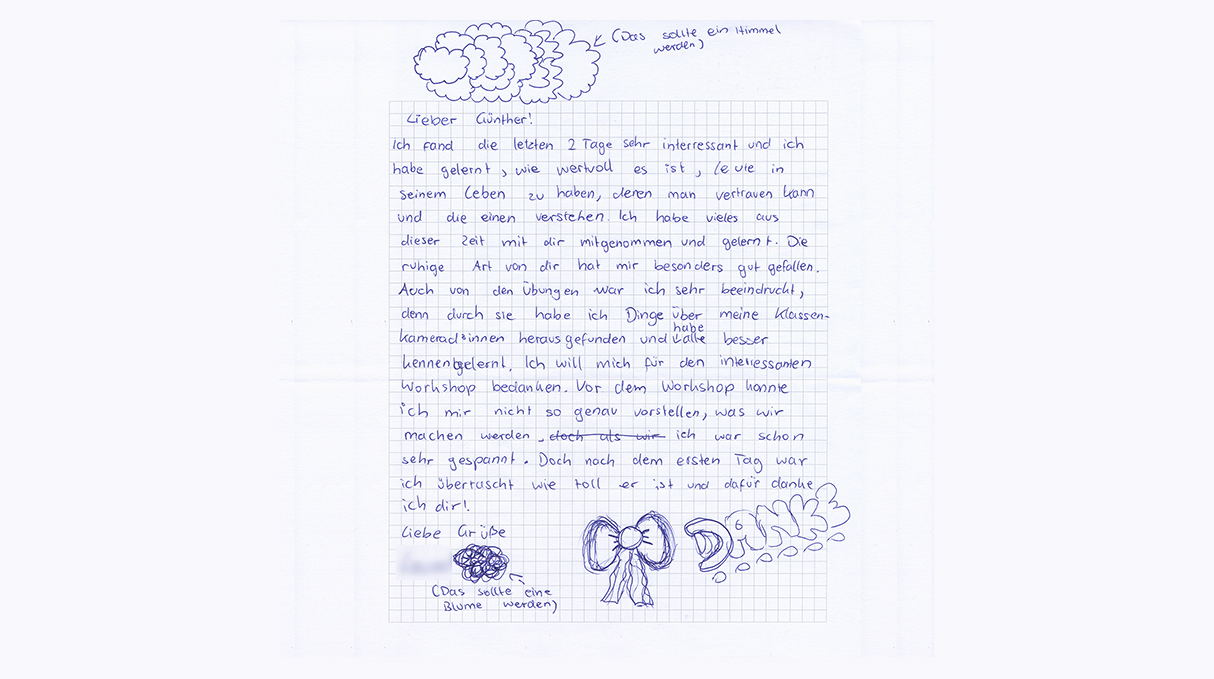 (Das sollte ein Himmel
werden)
Lieber Günther!
Ich fand die letzten 2 Tage sehr interressant und ich
habe gelernt, wie wertvoll es ist, Leute in
seinem Leben zu haben, deren man vertrauen kann
und die einen verstehen. Ich habe vieles aus
dieser Zeit mit dir mitgenommen und gelernt. Die
ruhige Art von dir hat mir besonders gut gefallen.
Auch von den Übungen war ich sehr beeindruckt,
denn durch sie habe ich Dinge über meine Klassen-
habe
kamerad*innen herausgefunden und alle besser
kennengelernt. Ich will mich für den interressanten
Workshop bedanken. Vor dem Workshop konnte
ich mir nicht so genau vorstellen, was wir
machen werden, doch als wir ich war schon
sehr gespannt. Doch nach dem ersten Tag war
ich übertascht wie toll er ist und dafür danke
ich dir!
Liebe Grüße
DANKE
(Das sollte eine
Blume werden)